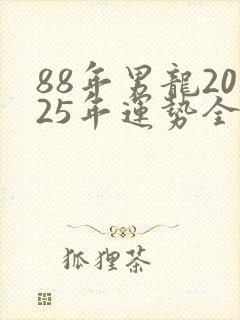 88年男龍20
25年運勢全
狐狸茶